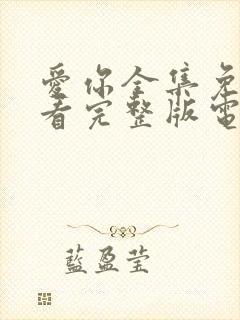 愛你全集免
看完整版電
藍盈瑩